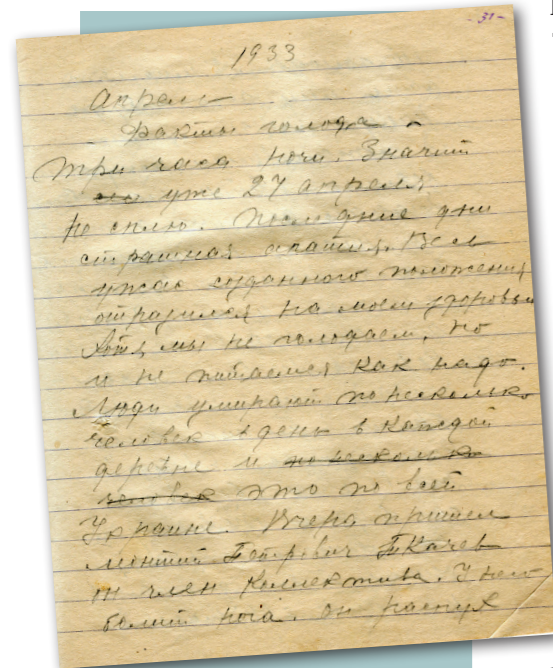 - 31 -
1933
Апрель
Факты голода
Три часа ночи. Значит
уже 27 апреля
Не сплю. Последние дни
страшная апатия. Весь
ужас созданного положения
отразился на моем здоровьи
Хотя мы не голодаем, но
и не питаемся как надо.
Люди умирают по несколько
человек в день в каждой
деревне и по несколько
человек это по всей
Украине. Вчера пришел
Петрович Ткачев
он член коллектива. У него
болит нога. он распух